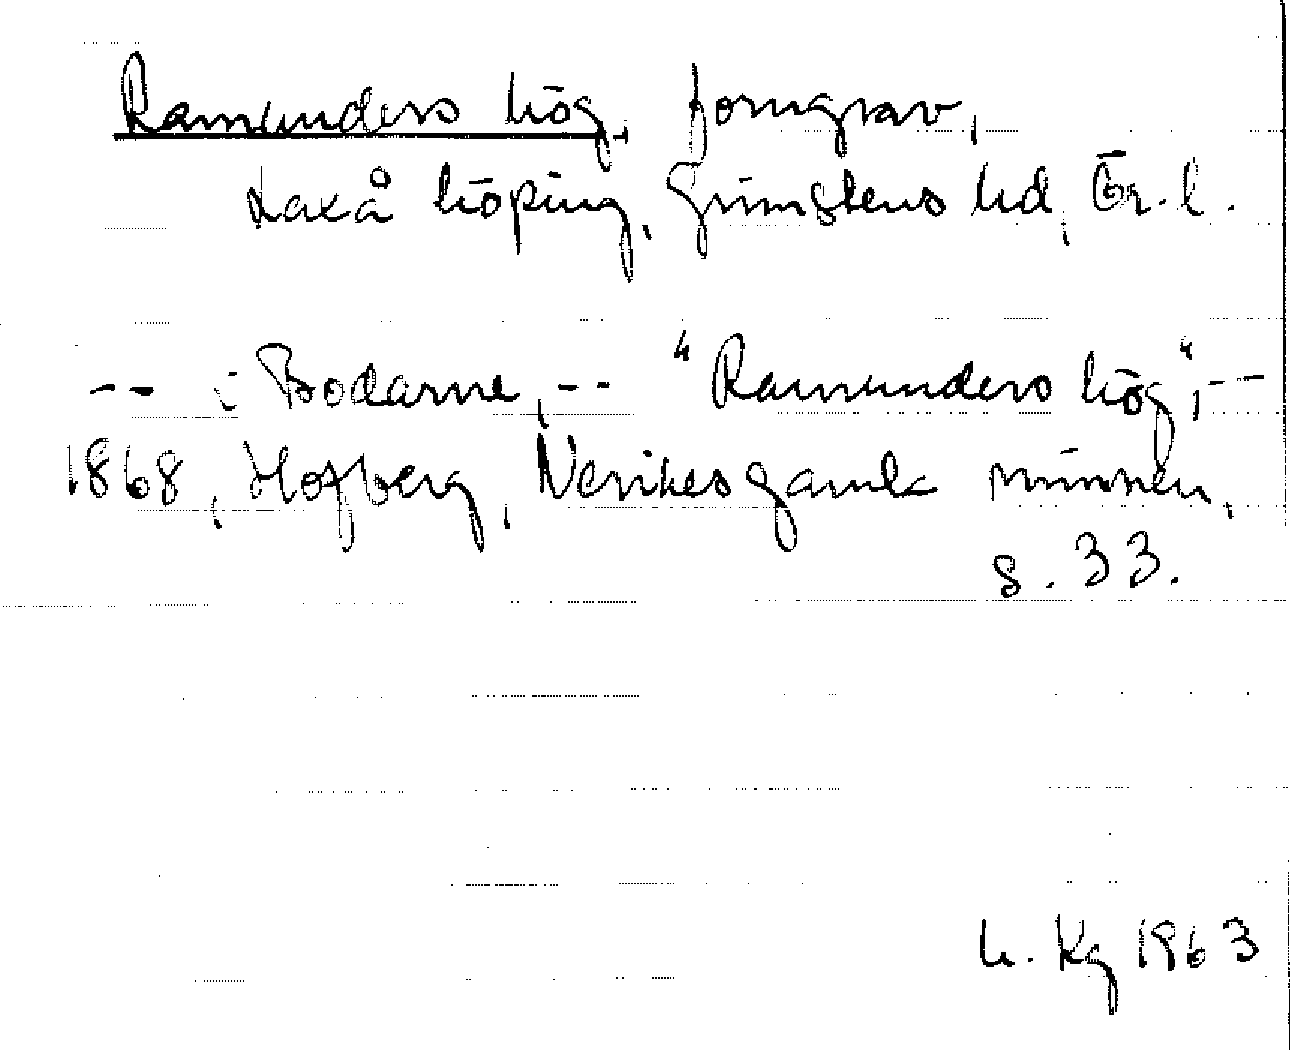 Ramunders hög, forngrav,
Laxå köping, Grimstens hd, Ör. l.
-- i Bodarne, -- "Ramunders hög", --
1868, Hofberg, Nerikes gamla minnen,
s. 33.
h. Kg 1963